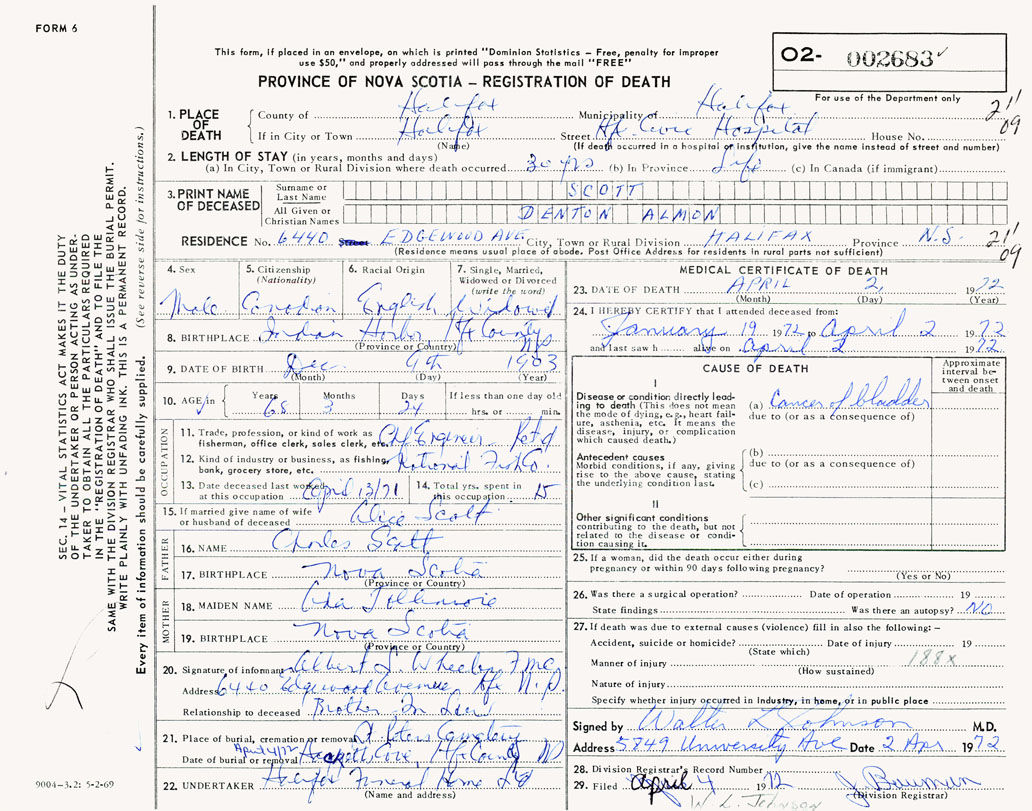 FORM 6
This form, if placed in an envelope, on which is printed "Dominion Statistics – Free, penalty for improper
use $50," and properly addressed will pass through the mail "FREE"
O2- 002683
For use of the Department only
PROVINCE OF NOVA SCOTIA – REGISTRATION OF DEATH
1. PLACE OF DEATH
County of Halifax Municipality of Halifax
If in City or Town Halifax Street Hfx. Civic Hospital House No.
(Name) (If death occurred in a hospital or institution, give the name instead of street and number)
2" 09
2. LENGTH OF STAY (in years, months and days)
(a) In City, Town or Rural Division where death occurred 30 yrs (b) In Province Life (c) In Canada (if immigrant)
3. PRINT NAME OF DECEASED
Surname or Last Name SCOTT
All Given or Christian Names DENTON ALMON
RESIDENCE No. 6440 Street EDGEWOOD AVE. City, Town or Rural Division HALIFAX Province N.S.
(Residence means usual place of abode. Post Office Address for residents in rural parts not sufficient)
2" 09
4. Sex Male
5. Citizenship (Nationality) Canadian
6. Racial Origin English
7. Single, Married, Widowed or Divorced (write the word) Widowed
8. BIRTHPLACE Indian Harbor Hfx County NS
(Province or Country)
9. DATE OF BIRTH Dec. 9th 1903
(Month) (Day) (Year)
10. AGE in Years 68 Months 3 Days 24 If less than one day old hrs. or min.
OCCUPATION
11. Trade, profession, or kind of work as fisherman, office clerk, sales clerk, etc. Chf Engineer Ret'd
12. Kind of industry or business, as fishing, bank, grocery store, etc. National Fish Co.
13. Date deceased last worked at this occupation April 13/71
14. Total yrs. spent in this occupation 15
15. If married give name of wife or husband of deceased Alice Scott
FATHER
16. NAME Charles Scott
17. BIRTHPLACE Nova Scotia
(Province or Country)
MOTHER
18. MAIDEN NAME Ada
19. BIRTHPLACE Nova Scotia
(Province or Country)
20. Signature of informant Albert L. Wheeler
Address 6440 Edgewood Avenue Hfx N.S.
Relationship to deceased Brother In Law
21. Place of burial, cremation or removal St. Peters Cemetery
Date of burial or removal April 4/72 Hackett Cove, Hfx County NS
22. UNDERTAKER Halifax Funeral Home Ltd
(Name and address)
MEDICAL CERTIFICATE OF DEATH
23. DATE OF DEATH APRIL 2, 1972
(Month) (Day) (Year)
24. I HEREBY CERTIFY that I attended deceased from:
January 19 1972 to April 2 1972
and last saw h alive on April 2 1972
CAUSE OF DEATH
Approximate interval between onset and death
I
Disease or condition directly leading to death (This does not mean the mode of dying, e.g., heart failure, asthenia, etc. It means the disease, injury, or complication which caused death.)
(a) Cancer of bladder
due to (or as a consequence of)
Antecedent causes
Morbid conditions, if any, giving rise to the above cause, stating the underlying condition last.
(b)
due to (or as a consequence of)
(c)
II
Other significant conditions
contributing to the death, but not related to the disease or condition causing it.
25. If a woman, did the death occur either during
pregnancy or within 90 days following pregnancy?
(Yes or No)
26. Was there a surgical operation? Date of operation 19
State findings Was there an autopsy? NO
27. If death was due to external causes (violence) fill in also the following: –
Accident, suicide or homicide? Date of injury 19
(State which)
Manner of injury 188x
(How sustained)
Nature of injury
Specify whether injury occurred in industry, in home, or in public place
Signed by Walter L Johnson M.D.
Address 5849 University Ave Date 2 Apr. 1972
28. Division Registrar's Record Number
29. Filed April 4 1972 J. Bauman
(Division Registrar)
W L. Johnson
SEC. 14 – VITAL STATISTICS ACT MAKES IT THE DUTY
OF THE UNDERTAKER OR PERSON ACTING AS UNDER-
TAKER TO OBTAIN ALL THE PARTICULARS REQUIRED
IN THE "REGISTRATION OF DEATH" AND TO FILE THE
SAME WITH THE DIVISION REGISTRAR WHO SHALL ISSUE THE BURIAL PERMIT.
WRITE PLAINLY WITH UNFADING INK. THIS IS A PERMANENT RECORD.
Every item of information should be carefully supplied. (See reverse side for instructions.)
9004–3.2: 5-2-69